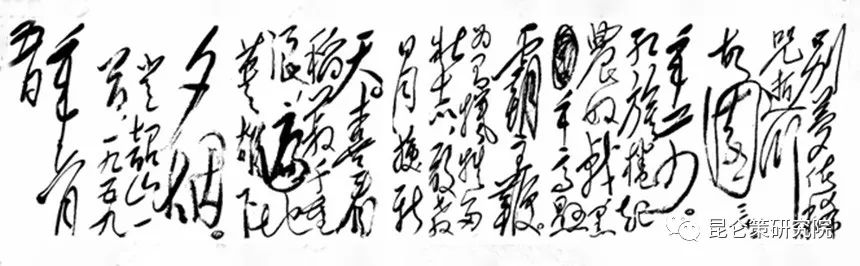 别梦依稀
咒逝川
故園三
红旗捲起
農奴戟黑
手高悬
霸主鞭。
为有犧牲多
壮志,敢教
日月换新
天。喜看
稻菽千重
浪,遍地
英雄下
夕烟。
登韶山一
首 一九五九
年六月
昆仑策研究院